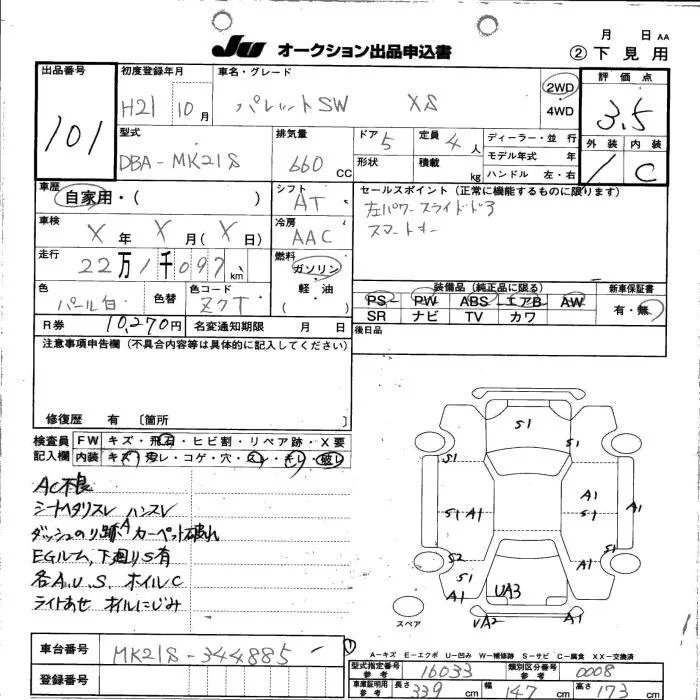 JU オークション出品申込書
月 日 AA
② 下見用
出品番号
101
初度登録年月
H21 10月
車名・グレード
パレットSW XS
2WD
4WD
評価点
3.5
外装 内装
1 C
型式
DBA-MK21S
排気量
660 CC
ドア 5
形状
定員 4人
積載 kg
ディーラー・並行
モデル年式 年
ハンドル 左・右
車歴
自家用・( )
シフト
AT
セールスポイント (正常に機能するものに限ります)
左パワースライドドア
スマートキー
車検
X年 X月(X日)
冷房
AAC
走行
22万1千097km
燃料
ガソリン
軽・油
( )
色
パール白
色替
色コード
ZCT
装備品 (純正品に限る)
PS PW ABS エアB AW
SR ナビ TV カワ
新車保証書
有・無
R券 10,270円
名変通知期限 月 日
後日品
注意事項申告欄 (不具合内容等は具体的に記入してください)
修復歴 有 〔箇所 〕
検査員記入欄
FW キズ・飛石・ヒビ割・リペア跡・X要
内装 キズ・汚レ・コゲ・穴・スレ・キレ・破レ
AC不良
シートヘタリスレ ハンスレ
ダッシュのり跡A カーペット破れ
EGルーム、下廻りS有
各A.U.S. ホイルC
ライトあせ オイルにじみ
S1
S1
S1 A1
S2
S1
A1
A1
S1
A1
S1
UA3
UA2
A1
スペア
A-キズ E-エクボ U-凹み W-補修跡 S-サビ C-腐食 XX-交換済
車台番号
MK21S-344885
登録番号
①
型式指定番号 参考 16033
類別区分番号 参考 0008
車庫証明用 参考 長さ 339cm 幅 147cm 高さ 173cm